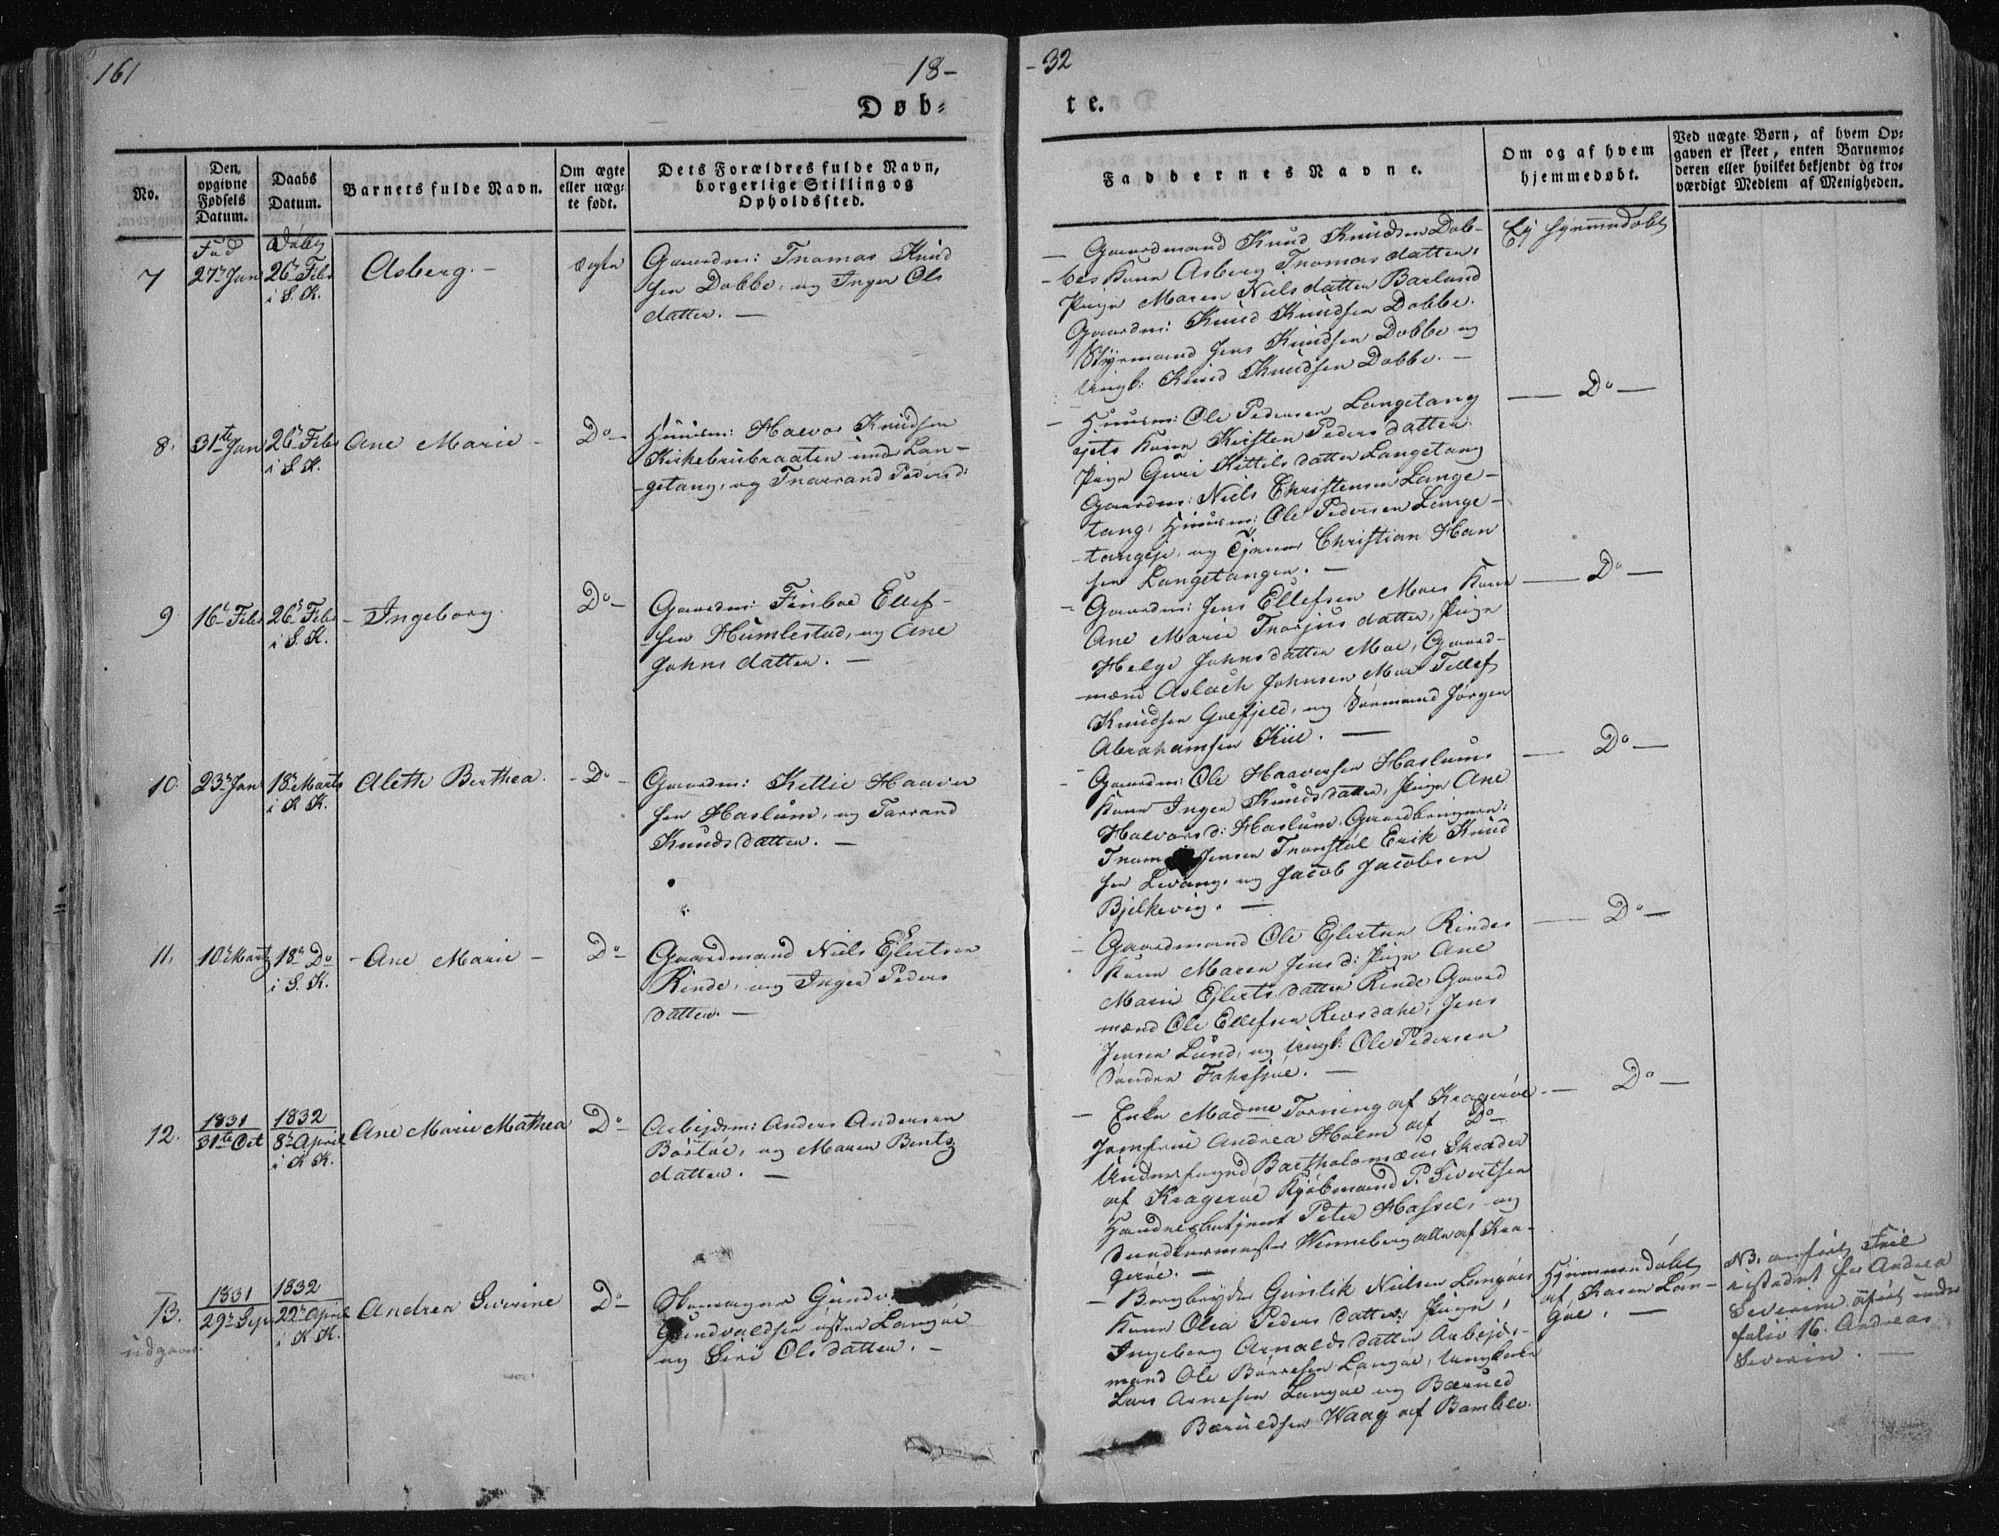 161
18-
-32
Døb-
te.
No.
Den opgivne Fødsels Datum.
Daabs Datum.
Barnets fulde Navn.
Om ægte eller uægte født.
Dets Forældres fulde Navn, borgerlige Stilling og Opholdssted.
Faddernes Navne.
Om og af hvem hjemmedøbt.
Ved uægte Børn, af hvem Opgaven er skeet, enten Barnemoderen eller hvilket bekjendt og troværdigt Medlem af Menigheden.
7
27r Jan
26r Febr
i S. K.
Asberg. -
ægte
Gaardm: Thomas Knud
sen Dobbe, og Inger Ols
datter. —
Gaardmand Knud Knudsen Dob-
bes Kone Asberg Thomasdatter,
Pige Maren Nielsdatter Barland
Gaardm: Knud Knudsen Dobbe.
Styrmand Jens Knudsen Dobbe og
Ungk: Knud Knudsen Dobbe. —
Ej hjemmedøbt
8.
31te Jan
26r Febr
i S. K.
Ane Marie -
Do -
Huusm: Halvor Knudsen
Kirkebrisbraaten under Lan-
getang, og Thorrand Peders d:
- Huusm: Ole Pedersen Langetang
ejets Kone Kirsten Pedersdatter
Pige Guri Kittilsdatter Langetang
Gaardm: Niels Christensen Lange-
tang, Huusm: Ole Pedersen Lange-
tangeje, og Tjener Christian Han
sen Langetangen. —
— Do —
9
16r Febr
26r Febr
i S. K.
- Ingeborg.
Do -
Gaardm: Finboe Ellef-
sen Humlestad, og Ane
Johnsdatter. —
- Gaardm: Jens Ellefsen Moes Kone
Ane Marie Thorjusdatter, Pige
Helge Johnsdatter Moe, Gaard-
mænd Aslach Johnsen Moe Tellef
Knudsen Grefjeld, og Sømand Jørgen
Abrahamsen Kiil. —
— Do —
10
23r Jan
18r Marts
i K K.
Aleth Berthea.
- Do -
Gaardm: Kittil Haavor
sen Haslum, og Tarrand
Knudsdatter. —
- Gaardm: Ole Haavorsen Haslums
Kone Inger Knudsdatter, Pige Ane
Halvorsd: Haslum. Gaardbrugerne:
Jensen Thorstøl Erik Knud
sen Levang, og Jacob Jacobsen
Bjelkevig. —
— Do —
11.
10r Marts
18r Do
i S. K.
- Ane Marie -
Do -
Gaardmand Niels Ejlertsen
Rinde, og Inger Peders
datter. —
- Gaardmand Ole Ejlertsen Rindes
Kone Maren Jensd: Pige Ane
Marie Ejlertsdatter Rinde Gaard
mænd Ole Ellefsen Revsdahl, Jens
Jensen Lund, og Ungk: Ole Pedersen
Søndre Fahrsjøe. —
— Do —
12.
1831
31te Oct
1832
8r April
i K K.
Ane Marie Mathea
Do -
Arbejdsm: Anders Andersen
Bøstøe, og Maren Bentz
datter. —
— Enke Madme Torning af Kragerøe
Jomfrue Andrea Holm af Do
Bartholomæus Skrøder
af Kragerøe Kjøbmand P. Sivertsen
Handelsbetjent Peter Hassel, og
Wenneberg alle af Kra-
gerøe. —
— Do —
13.
udgaar.
1831
29r Sep.
1832
22r April
i K K.
Andrea Severine
Do -
Gundvaldsen østre Langøe
og Siri Olsdatter. —
— Bergbryder Gunlik Nielsen Langøes
Kone Olea Pedersdatter, Pige,
Ingeborg Arnoldsdatter Arbejds-
mand Ole Børresen Langøe, Ungkarl
Lars Arnesen Langøe og Bæruld
Bæruldsen Waag af Bamble.
Hjemmedøbt
af, Karen Lan-
gøe. —
NB. anført Feil
istedet for Andrea
Severine under
folio 16. Andreas
Severin. —